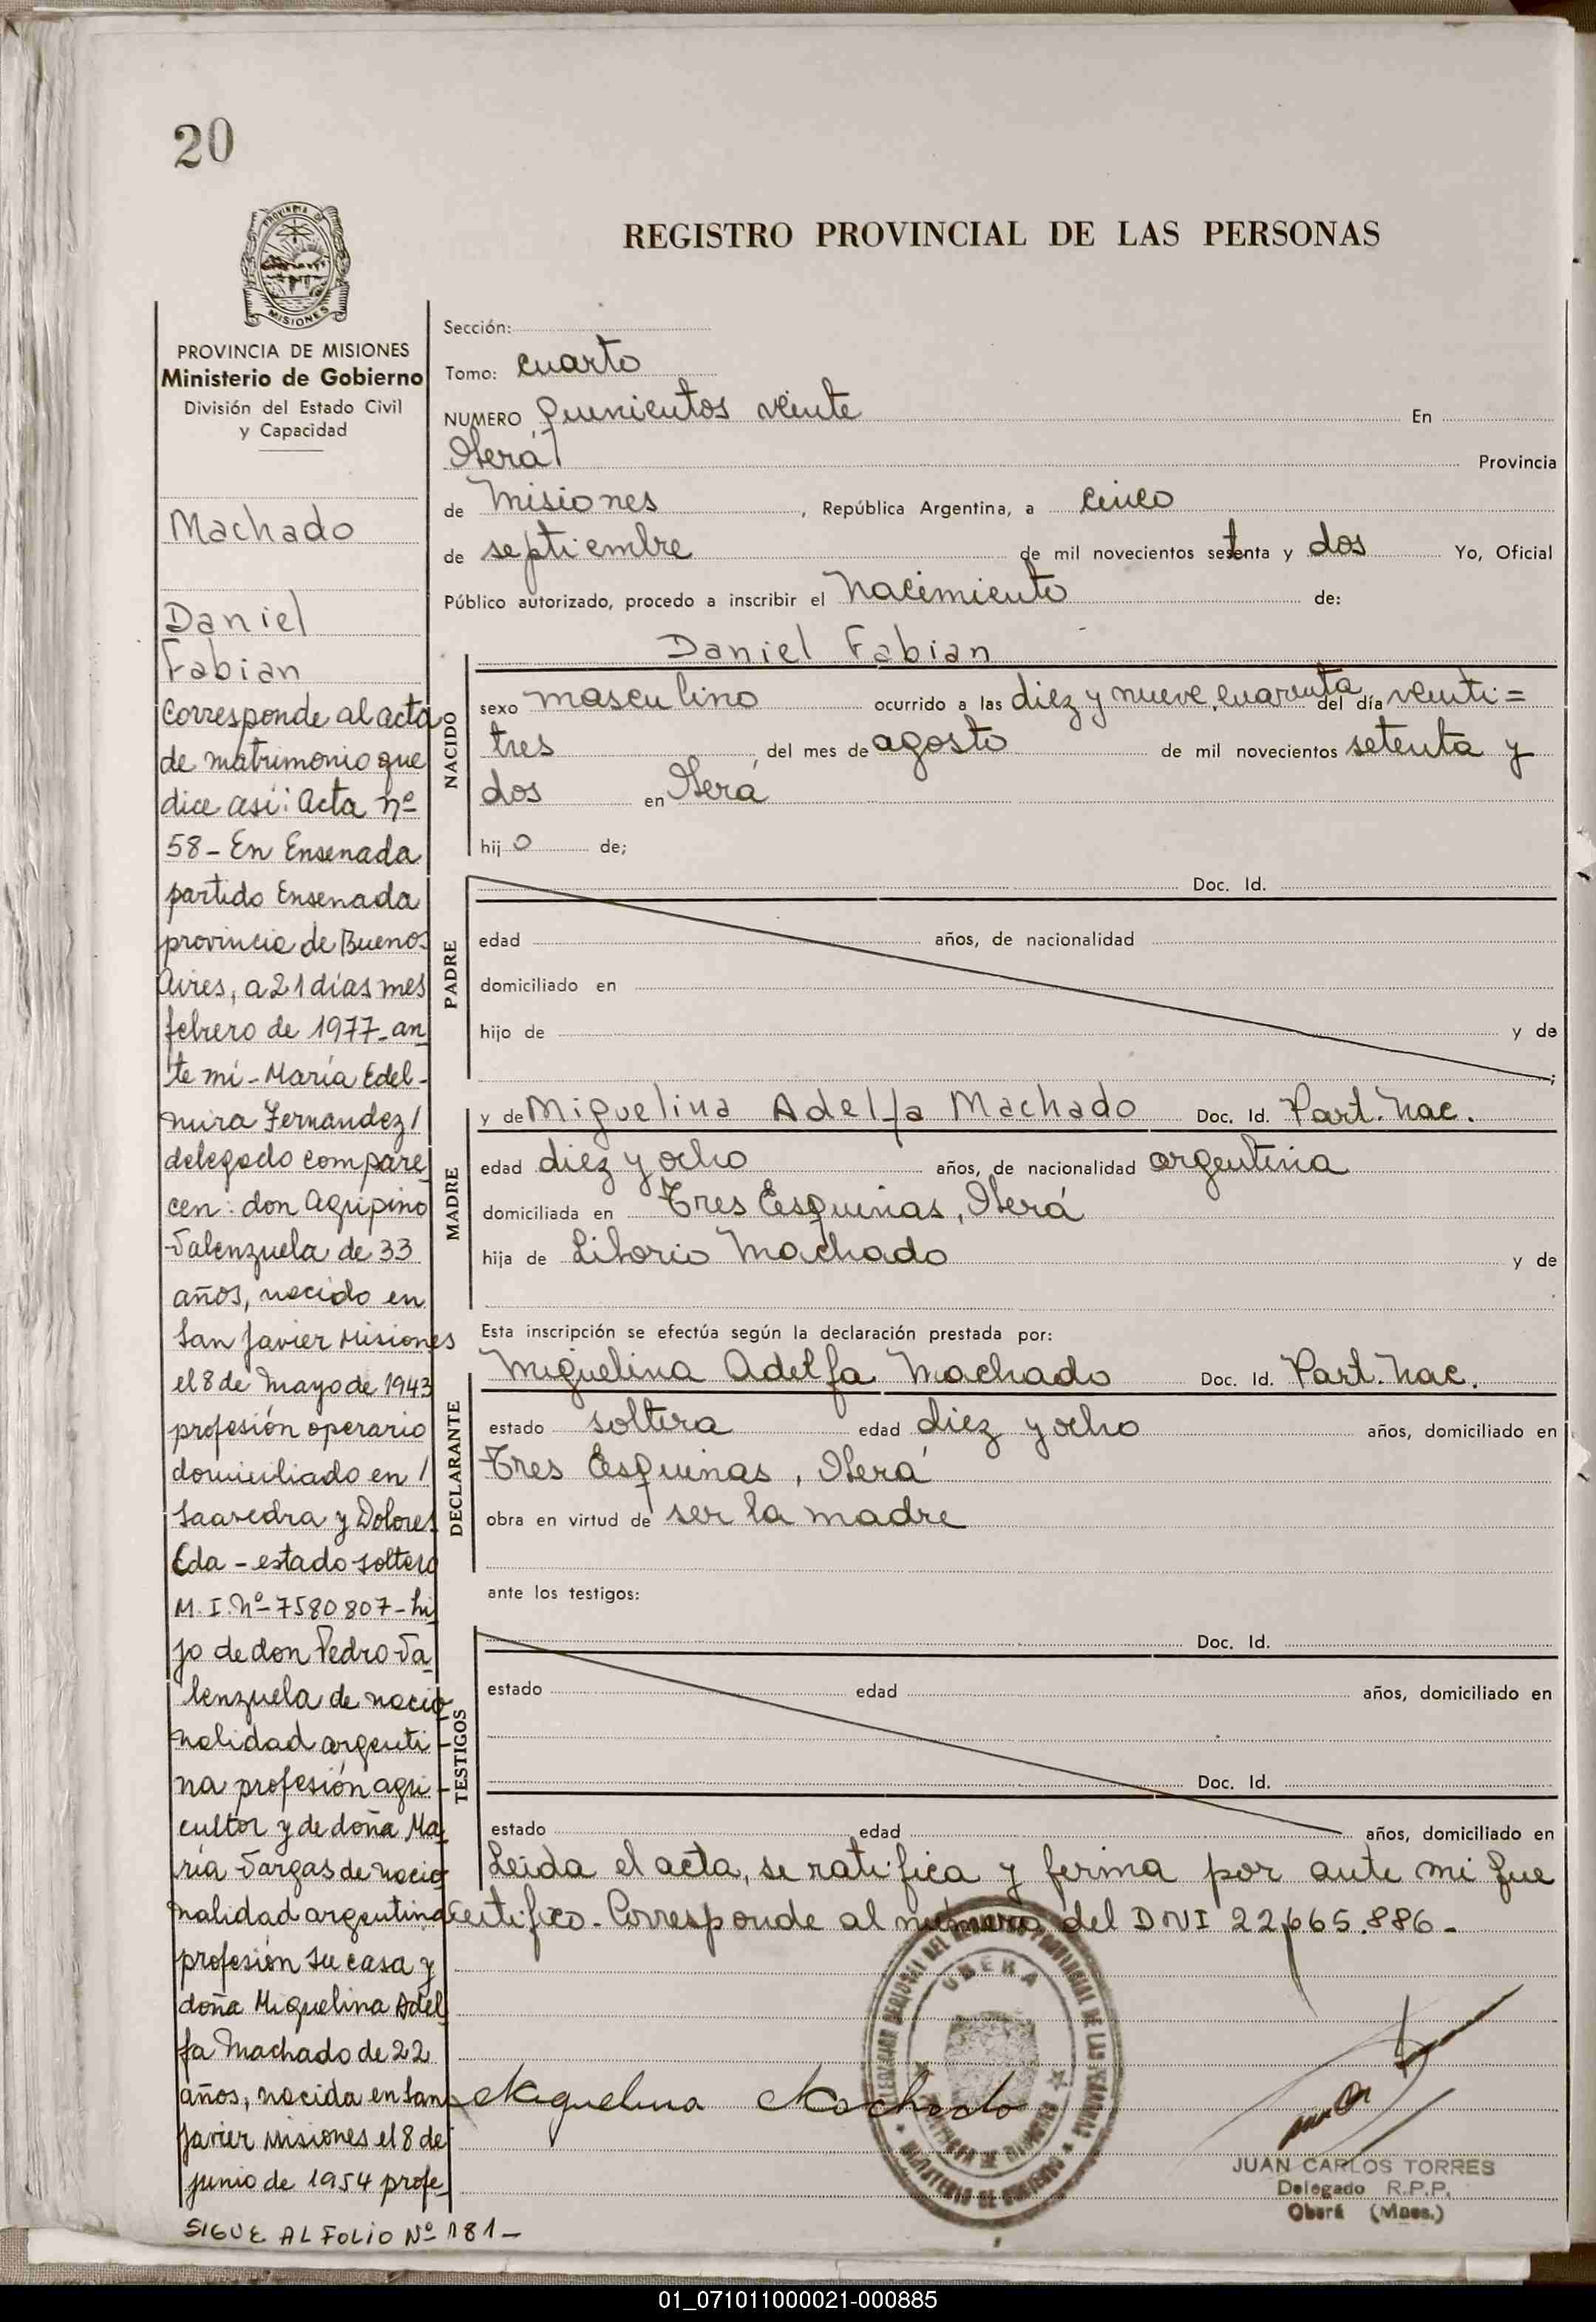 20
PROVINCIA DE
MISIONES
REGISTRO PROVINCIAL DE LAS PERSONAS
PROVINCIA DE MISIONES
Ministerio de Gobierno
División del Estado Civil
y Capacidad
Machado
Daniel
Fabian
Corresponde al acta
de matrimonio que
dice así: Acta nº
58 - En Ensenada
partido Ensenada
provincia de Buenos
Aires, a 21 días mes
febrero de 1977 - an
te mí - María Edel-
mira Fernandez /
delegado compare
cen: don Agripino
Valenzuela de 33
años, nacido en
San Javier Misiones
el 8 de Mayo de 1943
profesión operario
domiciliado en /
Saavedra y Dolores
Eda - estado soltero
M. I. Nº - 7580807 - hi
jo de don Pedro Va
lenzuela de nacio
nalidad argenti-
na profesión agri-
cultor y de doña Ma
ría Vargas de nacio
nalidad argentina
profesión su casa y
doña Miguelina Adel
fa Machado de 22
años, nacida en San
Javier Misiones el 8 de
junio de 1954 profe-
SIGUE AL FOLIO Nº 181 -
Sección:
Tomo: cuarto
NUMERO quinientos veinte En
Oberá Provincia
de Misiones , República Argentina, a cinco
de septiembre de mil novecientos setenta y dos Yo, Oficial
Público autorizado, procedo a inscribir el Nacimiento de:
Daniel Fabian
NACIDO
sexo masculino ocurrido a las diez y nueve, cuarenta del día veinti=
tres del mes de agosto de mil novecientos setenta y
dos en Oberá
hij o de;
PADRE
Doc. Id.
edad años, de nacionalidad
domiciliado en
hijo de y de
;
MADRE
y de Miguelina Adelfa Machado Doc. Id. Part. Nac.
edad diez y ocho años, de nacionalidad argentina
domiciliada en Tres Esquinas, Oberá
hija de Liborio Machado y de
Esta inscripción se efectúa según la declaración prestada por:
DECLARANTE
Miguelina Adelfa Machado Doc. Id. Part. Nac.
estado soltera edad diez y ocho años, domiciliado en
Tres Esquinas, Oberá
obra en virtud de ser la madre
ante los testigos:
TESTIGOS
Doc. Id.
estado edad años, domiciliado en
Doc. Id.
estado edad años, domiciliado en
Leída el acta, se ratifica y firma por ante mi que
certifico - Corresponde al número del DNI 22,665.886 -
OBERA
Miguelina Machado
JUAN CARLOS TORRES
Delegado R.P.P.
Oberá (Mnes.)
01_071011000021-000885